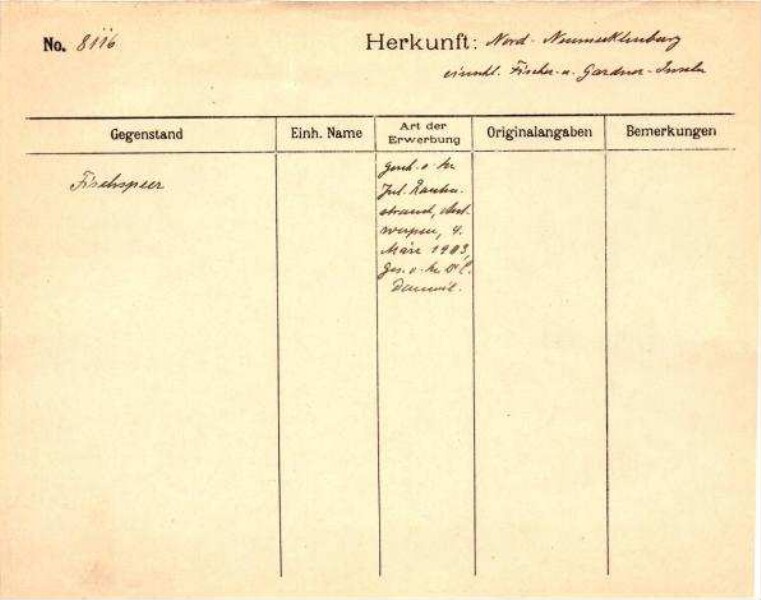 No. 8116
Herkunft: Nord-Neumecklenburg
einschl. Fischer- u. Gardner-Inseln
Gegenstand
Einh. Name
Art der
Erwerbung
Originalangaben
Bemerkungen
Fischspeer
Gesch. v. Hr
Jul.
strand, Ant-
werpen, 4.
März 1903,
Ges. v. Hr